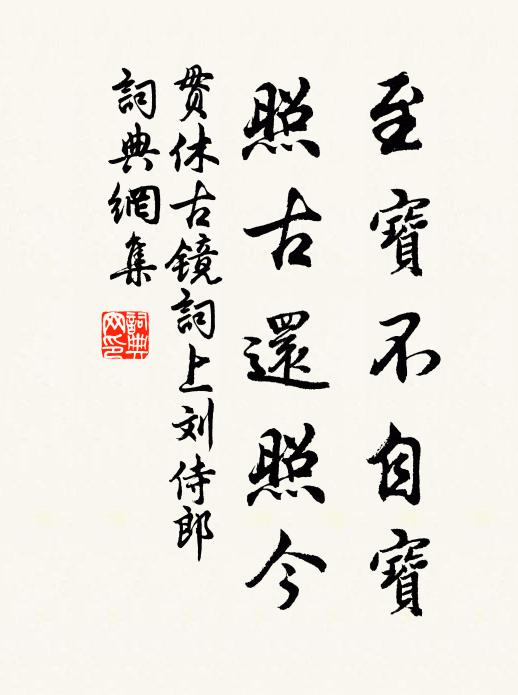 至寶不自寶
照古還照今
贯休古镜詞上刘侍郎
詞典網集
詞典
网印